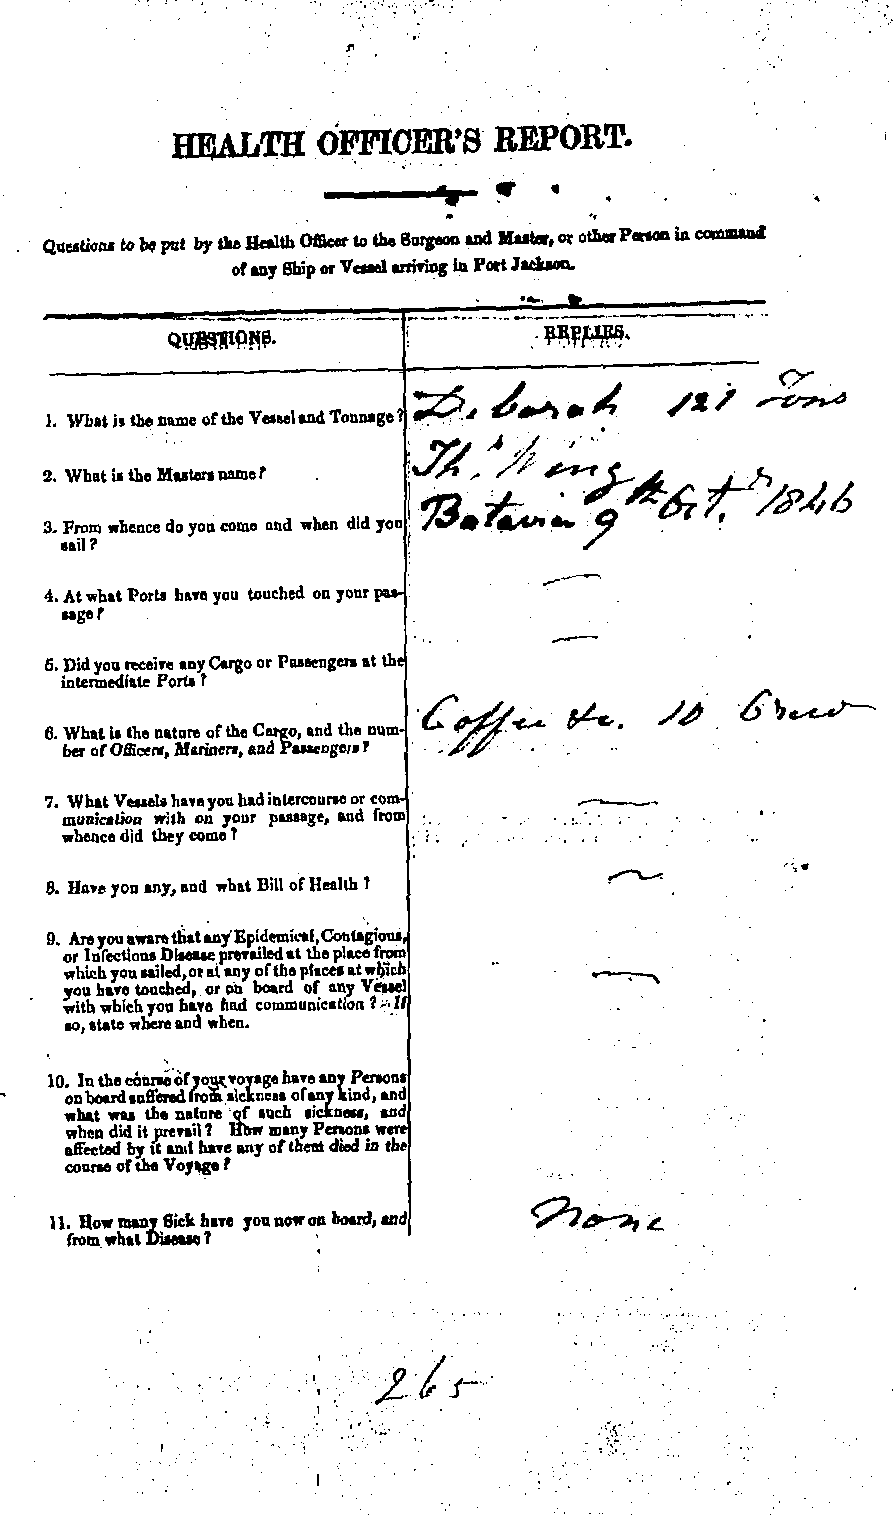 HEALTH OFFICER'S REPORT.
Questions to be put by the Health Officer to the Surgeon and Master, or other Person in command
of any Ship or Vessel arriving in Port Jackson.
QUESTIONS.
REPLIES.
1. What is the name of the Vessel and Tonnage?
Deborah 121 Tons
2. What is the Masters name?
Thos. Wing
3. From whence do you come and when did you
sail?
Batavia 9th Octr. 1846
4. At what Ports have you touched on your pas-
sage?
—
5. Did you receive any Cargo or Passengers at the
intermediate Ports?
—
6. What is the nature of the Cargo, and the num-
ber of Officers, Mariners, and Passengers?
Coffee &c. 10 Crew
7. What Vessels have you had intercourse or com-
munication with on your passage, and from
whence did they come?
—
8. Have you any, and what Bill of Health?
—
9. Are you aware that any Epidemical, Contagious,
or Infectious Disease prevailed at the place from
which you sailed, or at any of the places at which
you have touched, or on board of any Vessel
with which you have had communication?—If
so, state where and when.
—
10. In the course of your voyage have any Persons
on board suffered from sickness of any kind, and
what was the nature of such sickness, and
when did it prevail? How many Persons were
affected by it and have any of them died in the
course of the Voyage?
11. How many Sick have you now on board, and
from what Disease?
None
265